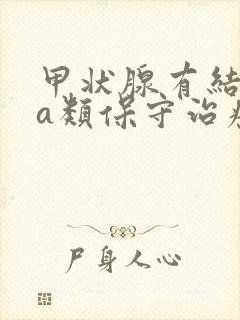 甲状腺有結
a類保守治
尸身人心